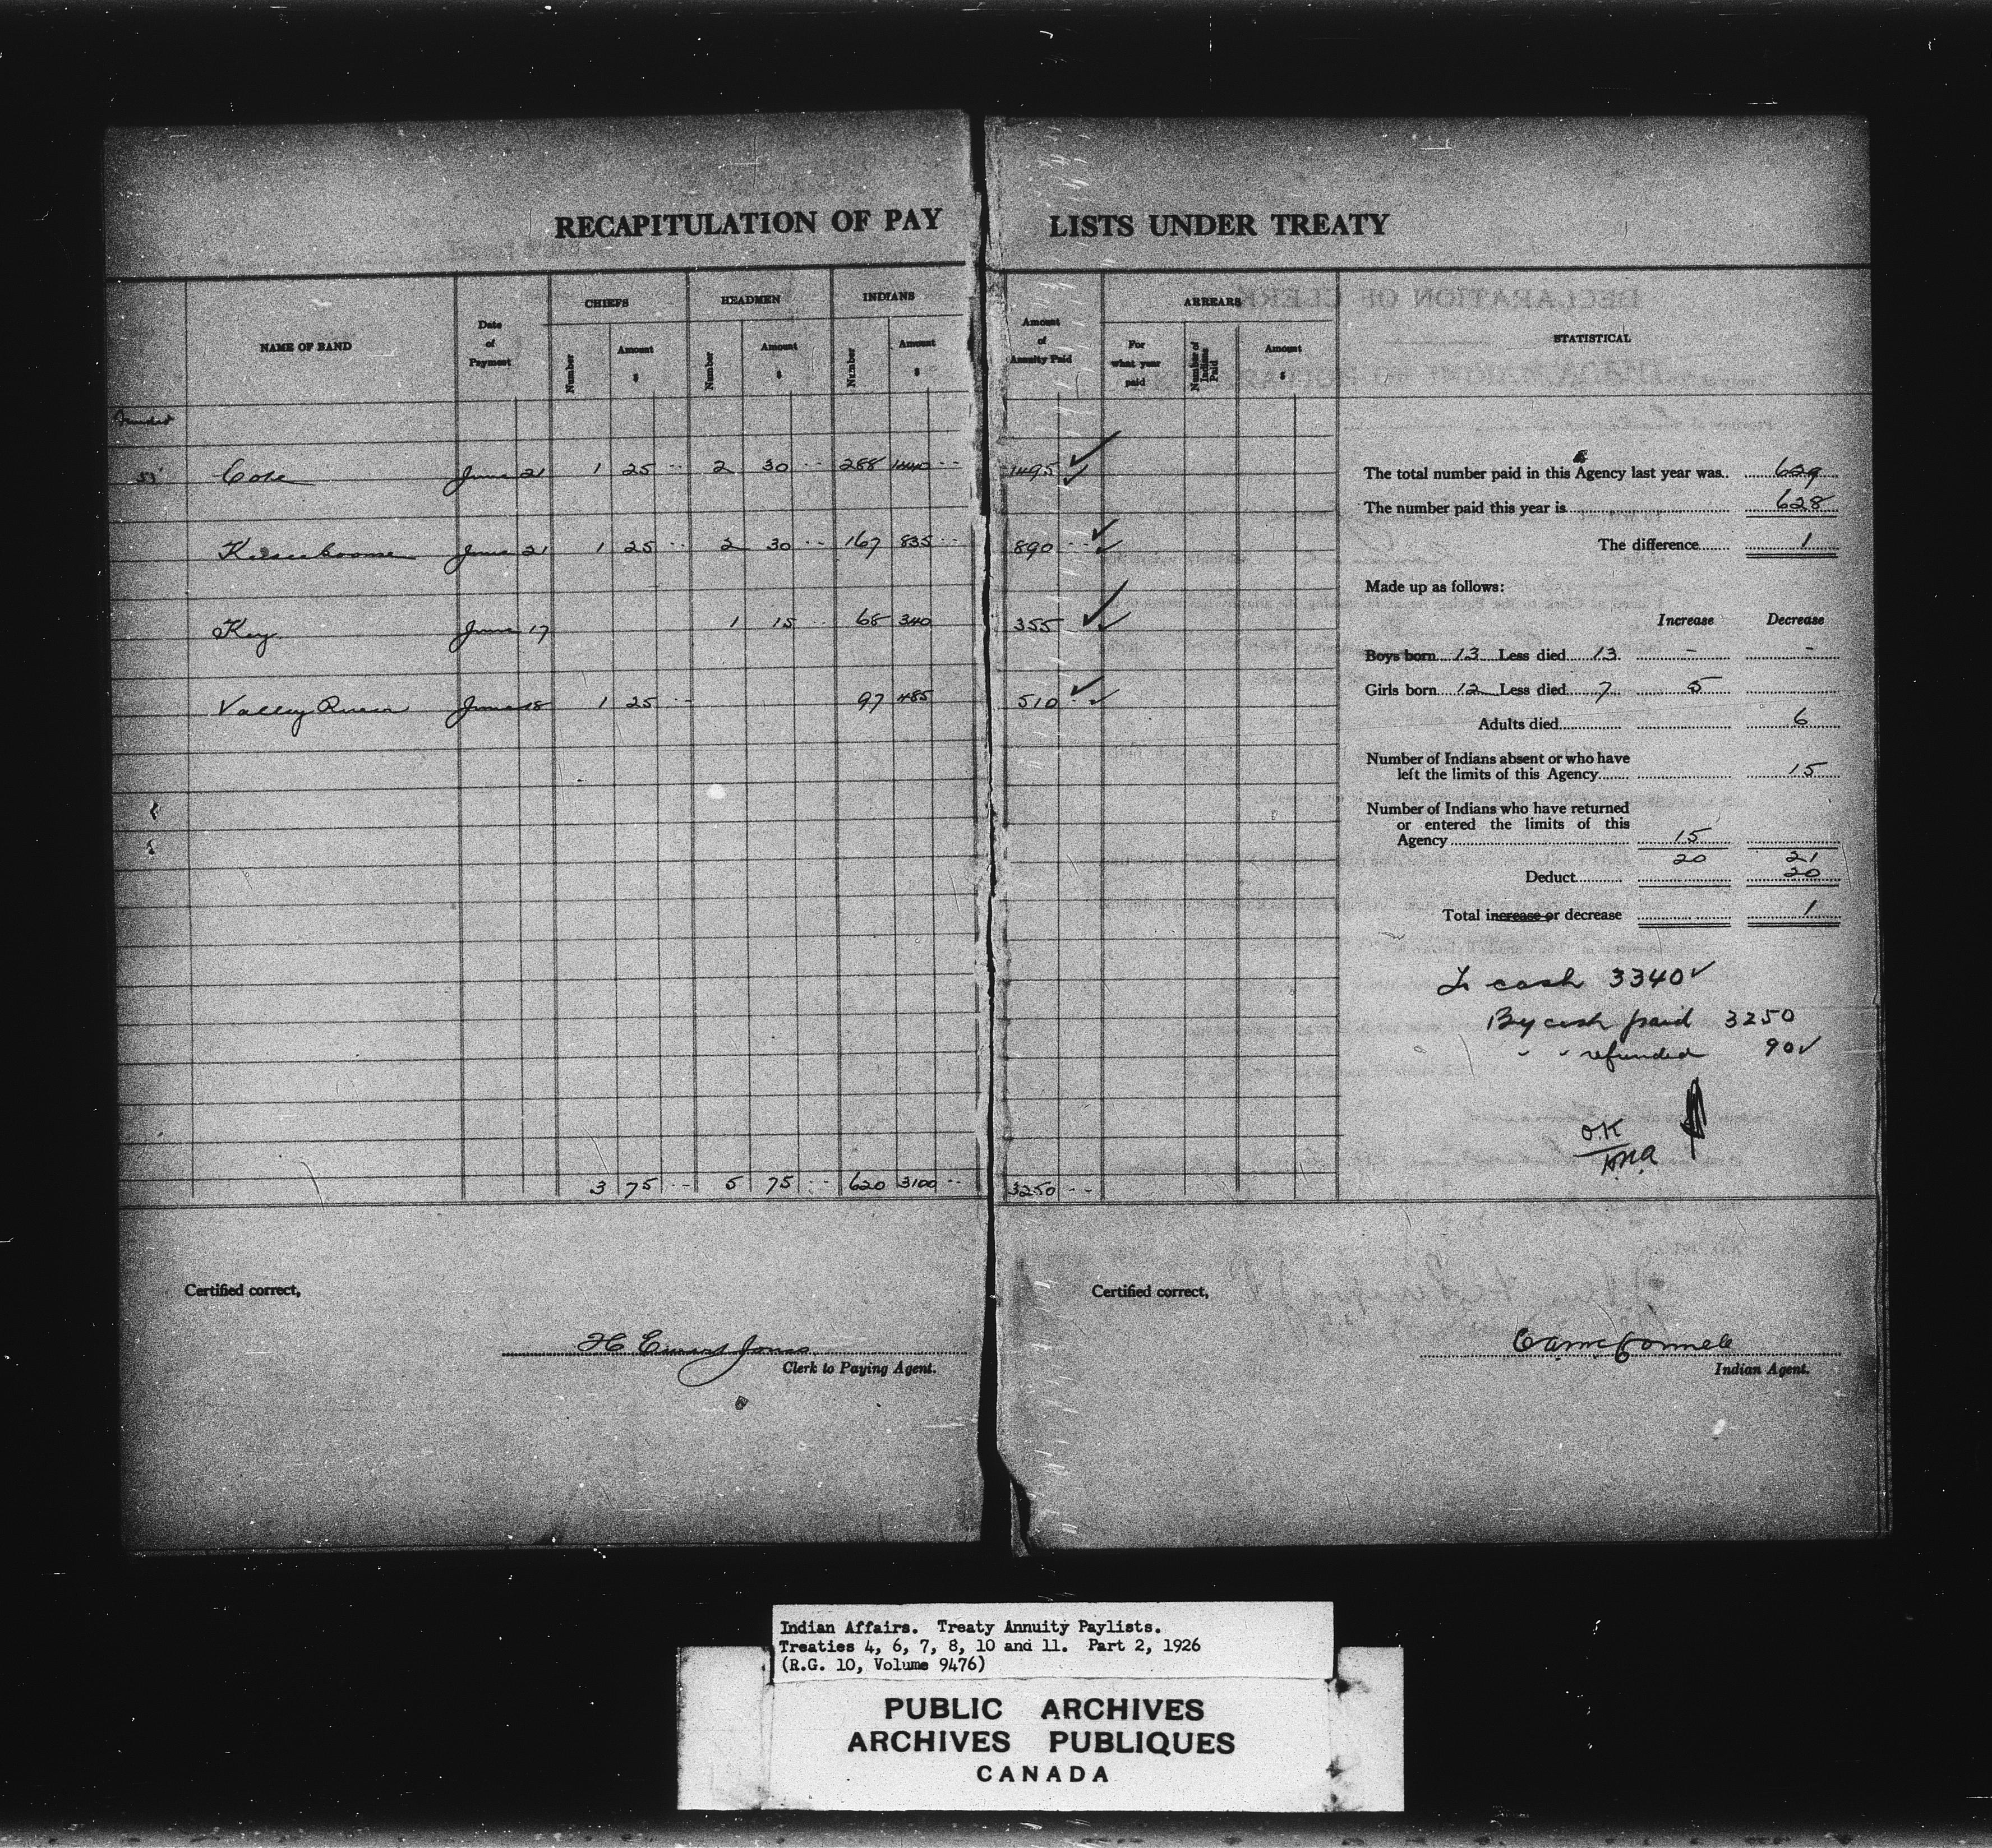 RECAPITULATION OF PAY LISTS UNDER TREATY
NAME OF BAND
Date of Payment
CHIEFS
Number
Amount $
HEADMEN
Number
Amount $
INDIANS
Number
Amount $
Amount of Annuity Paid
ARREARS
For what year paid
Number of Indians Paid
Amount $
STATISTICAL
Cote June 21 1 25 -- 2 30 -- 288 1440 -- 1495 ✓
Keeseekoose June 21 1 25 -- 2 30 -- 167 835 -- 890 -- ✓
Key June 17 1 15 -- 68 340 355 ✓
Valley River June 18 1 25 -- 97 485 510 -- ✓
3 75 -- 5 75 -- 620 3100 -- 3250 --
The total number paid in this Agency last year was.. 629
The number paid this year is 628
The difference 1
Made up as follows:
Increase Decrease
Boys born 13 Less died 13 - -
Girls born 12 Less died 7 5
Adults died 6
Number of Indians absent or who have
left the limits of this Agency 15
Number of Indians who have returned
or entered the limits of this
Agency 15
20 21
Deduct 20
Total increase or decrease 1
To cash 3340 ✓
By cash paid 3250
" " refunded 90 ✓
O.K
Certified correct,
H Ernest Jones
Clerk to Paying Agent.
Certified correct,
Indian Agent.
Indian Affairs. Treaty Annuity Paylists.
Treaties 4, 6, 7, 8, 10 and 11. Part 2, 1926
(R.G. 10, Volume 9476)
PUBLIC ARCHIVES
ARCHIVES PUBLIQUES
CANADA